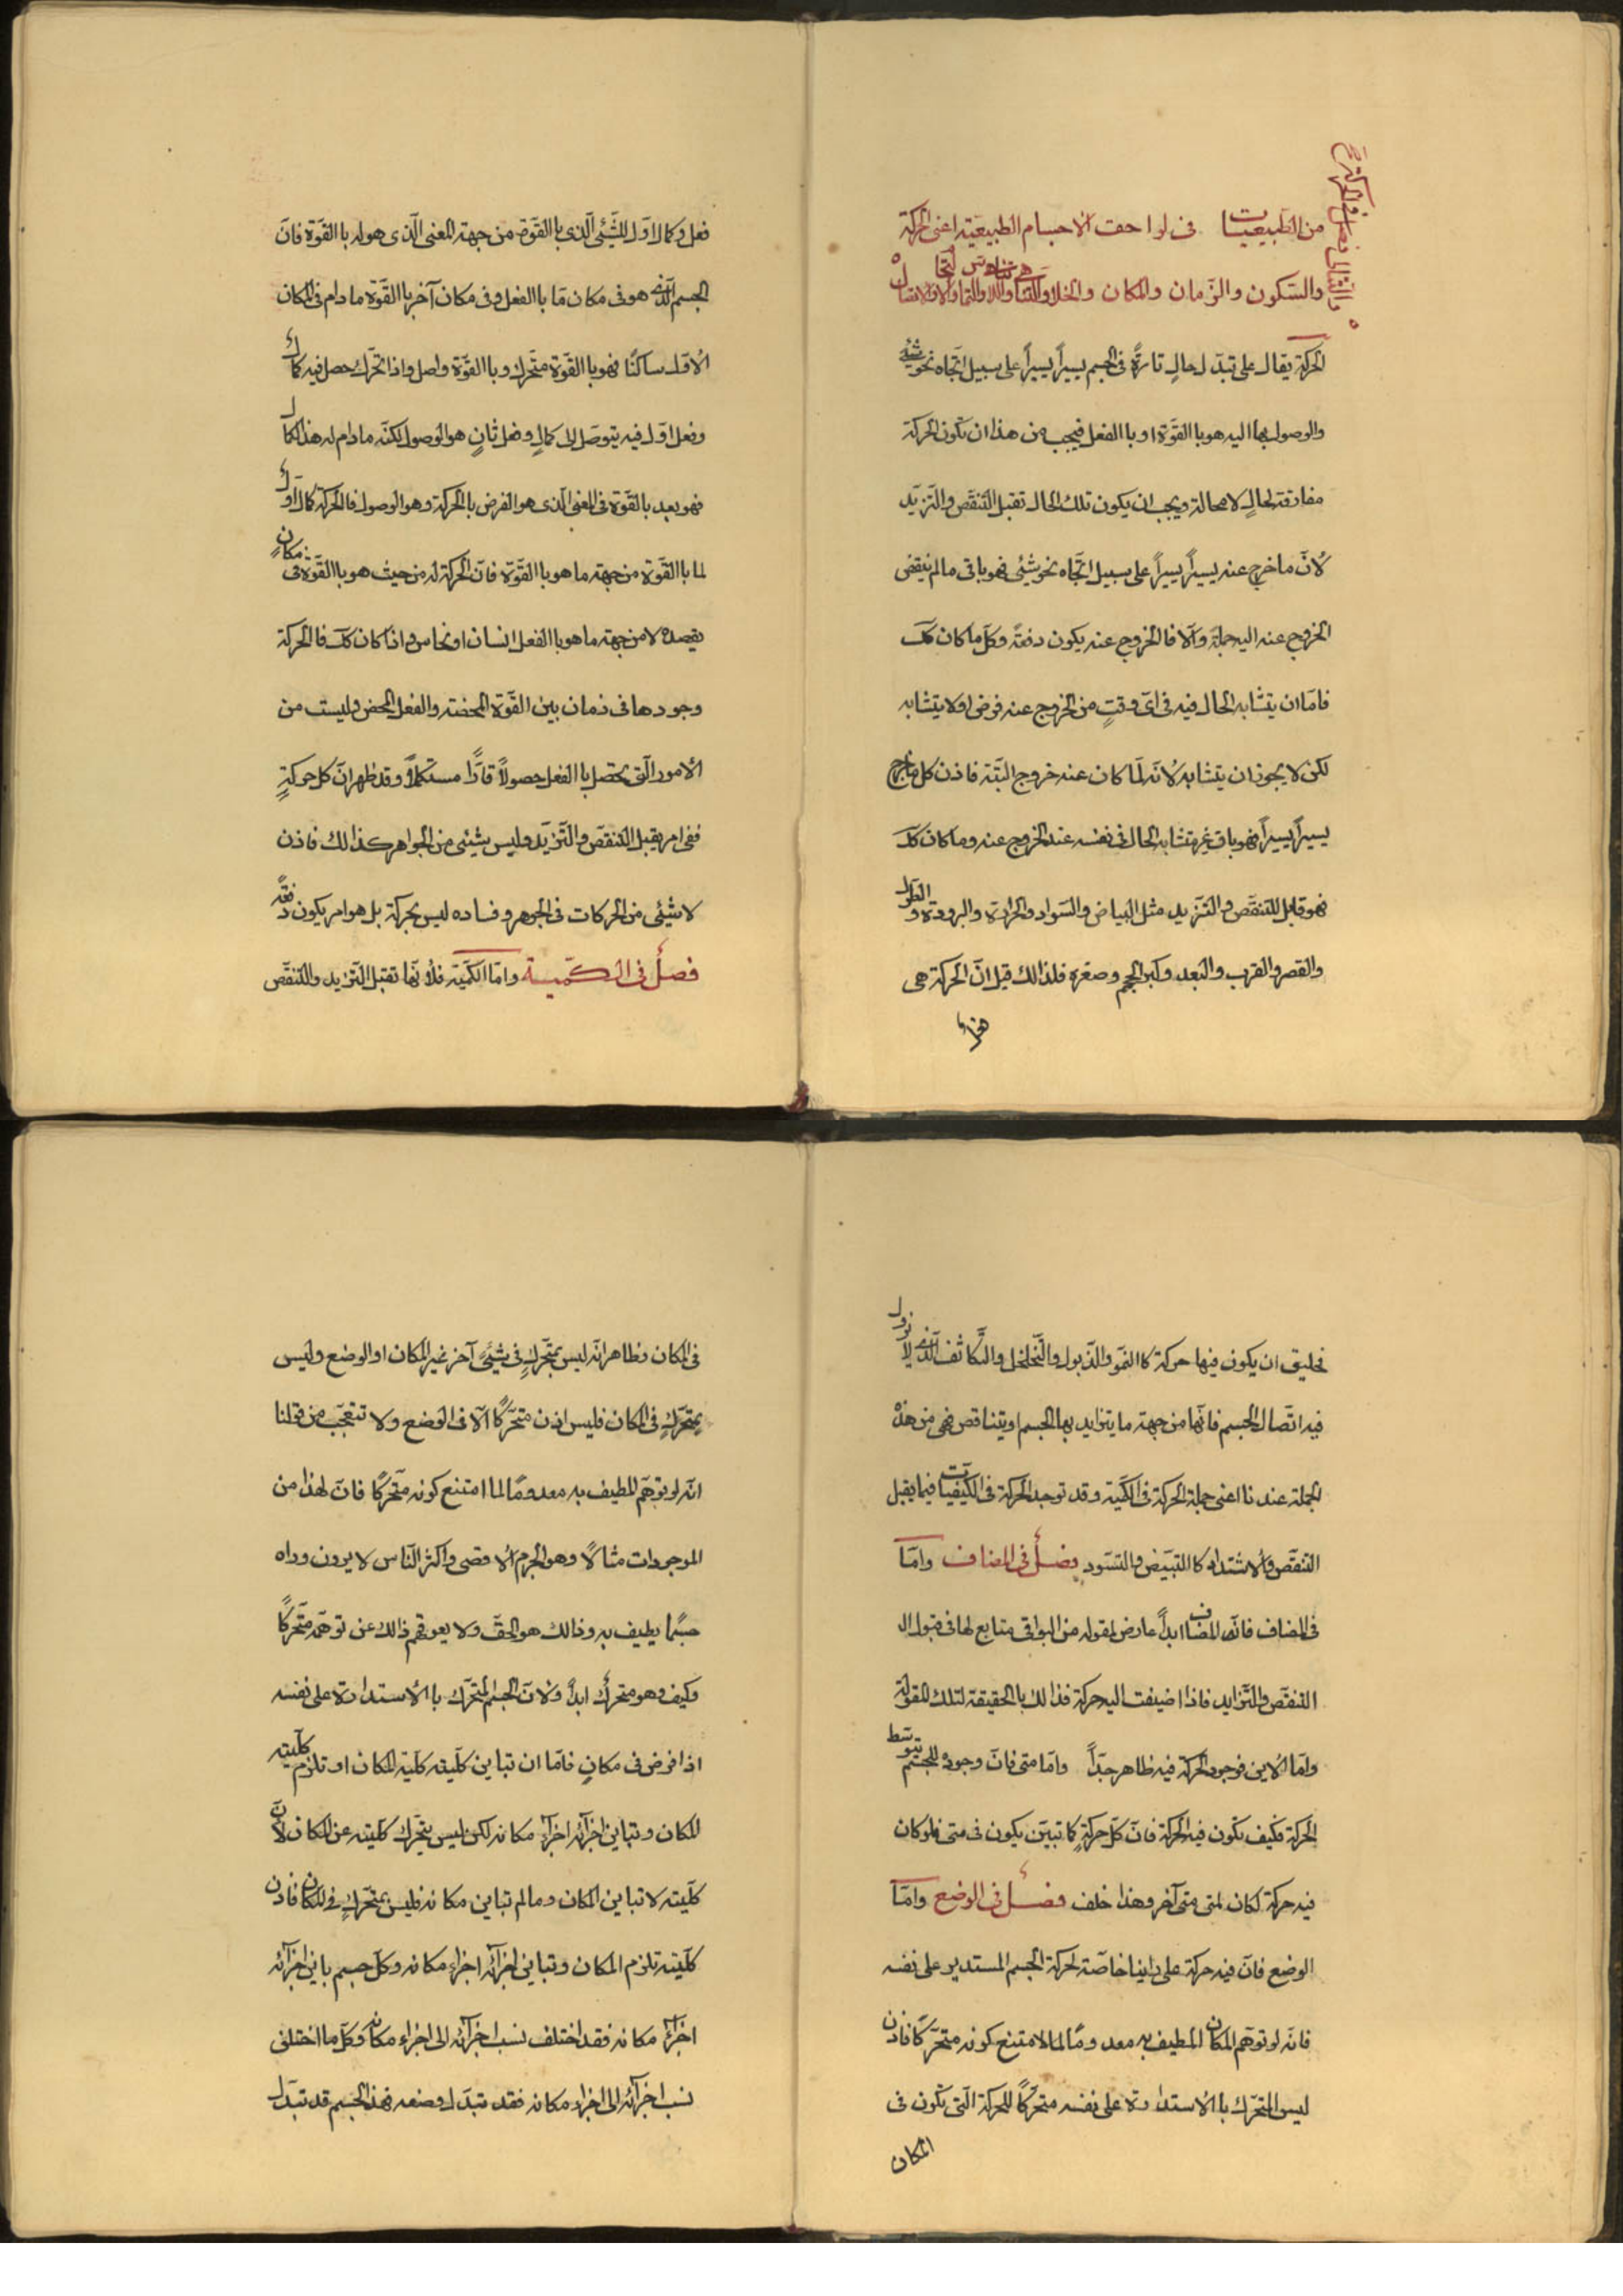 المقالة الثانية
من الطبيعيات فى لواحق الاجسام الطبيعية اعنى الحركة
والسكون والزمان والمكان والخلا والتناهى واللاتناهى والتماس والالتحام والاتصال
الحركة يقال على تبدل حالٍ قارةً فى الجسم يسيراً يسيراً على سبيل اتجاه نحو شيئ
والوصول بها اليه هو باالقوة او باالفعل فيجب من هذا ان تكون الحركة
مفارقة لحالٍ لا محالة ويجب ان يكون تلك الحال تقبل التنقص والتزيد
لأنّ ما خرج عنه يسيراً يسيراً على سبيل اتجاه نحو شيئى فهو باقى مالم ينقض
الخروج عنه اليه جملة وآلا فالخروج عنه يكون دفعةً وكل ما كان كك
فامّا ان يتشابه الحال فيه فى اىّ وقتٍ من الخروج عنه فرض او لا يتشابه
لكن لا يجوز ان يتشابه لأنّه لمّا كان عنه خروج البتّة فاذن كل ما خرج
يسيراً يسيراً فهو باقٍ غير متشابه الحال فى نفسه عند الخروج عنه وما كان كك
فهو قابل للتنقّص والتزيد مثل البياض والسواد والحرارة والبرودة والطول
والقصر والقرب والبعد وكبر الحجم وصغره فلذالك قيل انّ الحركة هى
فعل وكمال اوّل للشّيئى الّذى باالقوّة من جهة المعنى الّذى هو له باالقوّة فانّ
الجسم الّذى هو فى مكان مّا باالفعل وفى مكان آخر باالقوّة مادام فى المكان
الأوّل ساكنًا فهو باالقوّة متحّرك وباالقوّة واصل واذا تحرّك حصل فيه كمال
وفعل اوّل فيه يتوصّل الى كمالٍ وفعل ثانٍ هو الوصول لكنّه مادام له هذا الكمال
فهو بعد بالقوّة فى المعنى الّذى هو الغرض باالحركة وهو الوصول فالحركة كمال اوّل
لما باالقوّة من جهة ما هو باالقوّة فانّ الحركة له من حيث هو باالقوّة فى مكانٍ
يقصده لا من جهة ما هو باالفعل انسان او نحاس واذا كان كك فالحركة
وجودها فى زمان بين القوّة المحضة والفعل المحض وليست من
الأمور الّتى تحصل باالفعل حصولاً قارًّا مستكملاً وقد ظهر انّ كل حركةٍ
ففى امر يقبل التنقّص والتّزيّد وليس شيئى من الجواهر كذالك فاذن
لا شيئى من الحركات فى الجوهر وفساده ليس بحركة بل هو امر يكون دفعةً
فصلٌ فى الكمّيّة وامّا الكمّيّة فلأنّها تقبل التّزيد والتنقّص
فخليق ان يكون فيها حركة كاالنموّ والذّبول والتّخلخل والتّكاثف الّذى لا يزول
فيه اتّصال الجسم فانّها من جهة ما يتزايد بها الجسم او يتناقص فهى من هذه
الجملة عندنا اعنى جملة الحركة فى الكميّة وقد توجد الحركة فى الكيفيّات فيما يقبل
التنقّص والأشتداد كاالتبيّض والتسوّد فصلٌ فى المضاف وامّا
فى المضاف فانّ المضاف ابداً عارض لمقوله من البواقى متابع لها فى قبول ال
التنقّص والتّزايد فاذا اضيفت اليه حركة فذالك باالحقيقة لتلك المقولة
وامّا الأين فوجود الحركة فيه ظاهر جدّاً وامّا متى فانّ وجوده للجسم بتوسّط
الحركة فكيف تكون فيه الحركة فانّ كلّ حركةٍ كما تبيّن يكون فى متى فلو كان
فيه حركة لكان لمتى متى آخر وهذا خلف فصلٌ فى الوضع وامّا
الوضع فانّ فيه حركة على رأينا خاصّة لحركة الجسم المستدير على نفسه
فانّه لو توهّم المكان المطيف به معدومًا لما لامتنع كونه متحرّكًا فاذن
ليس المتحّرك باالأستدارة على نفسه متحرّكاً للحركة الّتى تكون فى
المكان
فى المكان وظاهر انّه ليس بمتحّركٍ فى شيئى آخر غير المكان او الوضع وليس
بمتحّركٍ فى المكان فليس اذن متحّركًا آلا فى الوضع ولا تتعجّب من قولنا
انّه لو توهّم المطيف به معدومًا لما امتنع كونه متّحركًا فانّ لهذا من
الموجودات مثالاً وهو الجرم الأقصى واكثر النّاس لا يرون وراه
جسمًا يطيف به وذالك هو الحقّ ولا يعوقهم ذالك عن توهّمه متّحركًا
وكيف وهو متحركٌ ابداً ولأنّ الجسم المتحّرك باالأستدارة على نفسه
اذا فرض فى مكانٍ فامّا ان تباين كلّيته كلّيّة المكان او تلزم كلّيته
المكان وتباين اجزآئه اجزآء مكانه لكن ليس يتحّرك كلّيته عن المكان لأنّ
كلّيته لا تباين المكان وما لم تباين مكانه فليس بمتحّركٍ فى المكان فاذن
كلّيته تلزم المكان وتباين اجزآئه اجزاء مكانه وكلّ جسم باين اجزآئه
اجزآء مكانه فقد اختلف نسب اجزآئه الى اجزاء مكانه وكلّ ما اختلفى
نسب اجزآئه الى اجزاء مكانه فقد تبدّل وضعه فهذا الجسم قد تبدّل